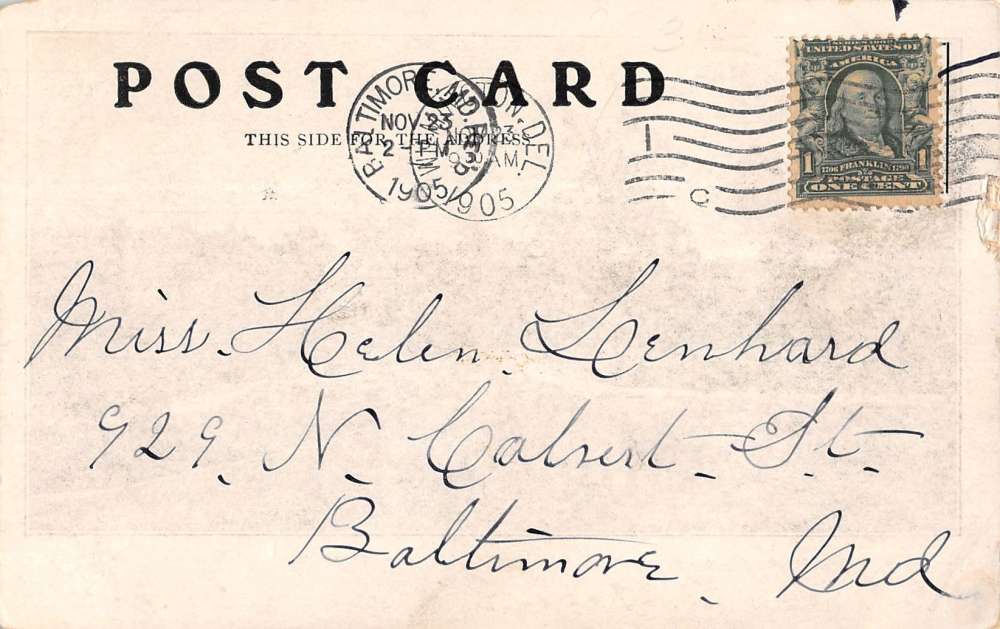 POST CARD
THIS SIDE FOR THE ADDRESS
BALTIMORE, MD.
NOV 23
2 - PM
1905
DEL.
AM
1905
1
C
SERIES 1902
UNITED STATES OF
AMERICA
1 1706 FRANKLIN 1790 1
POSTAGE
ONE CENT
Miss. Helen. Lenhard
929. N. Calvert. St.
Baltimore. Md